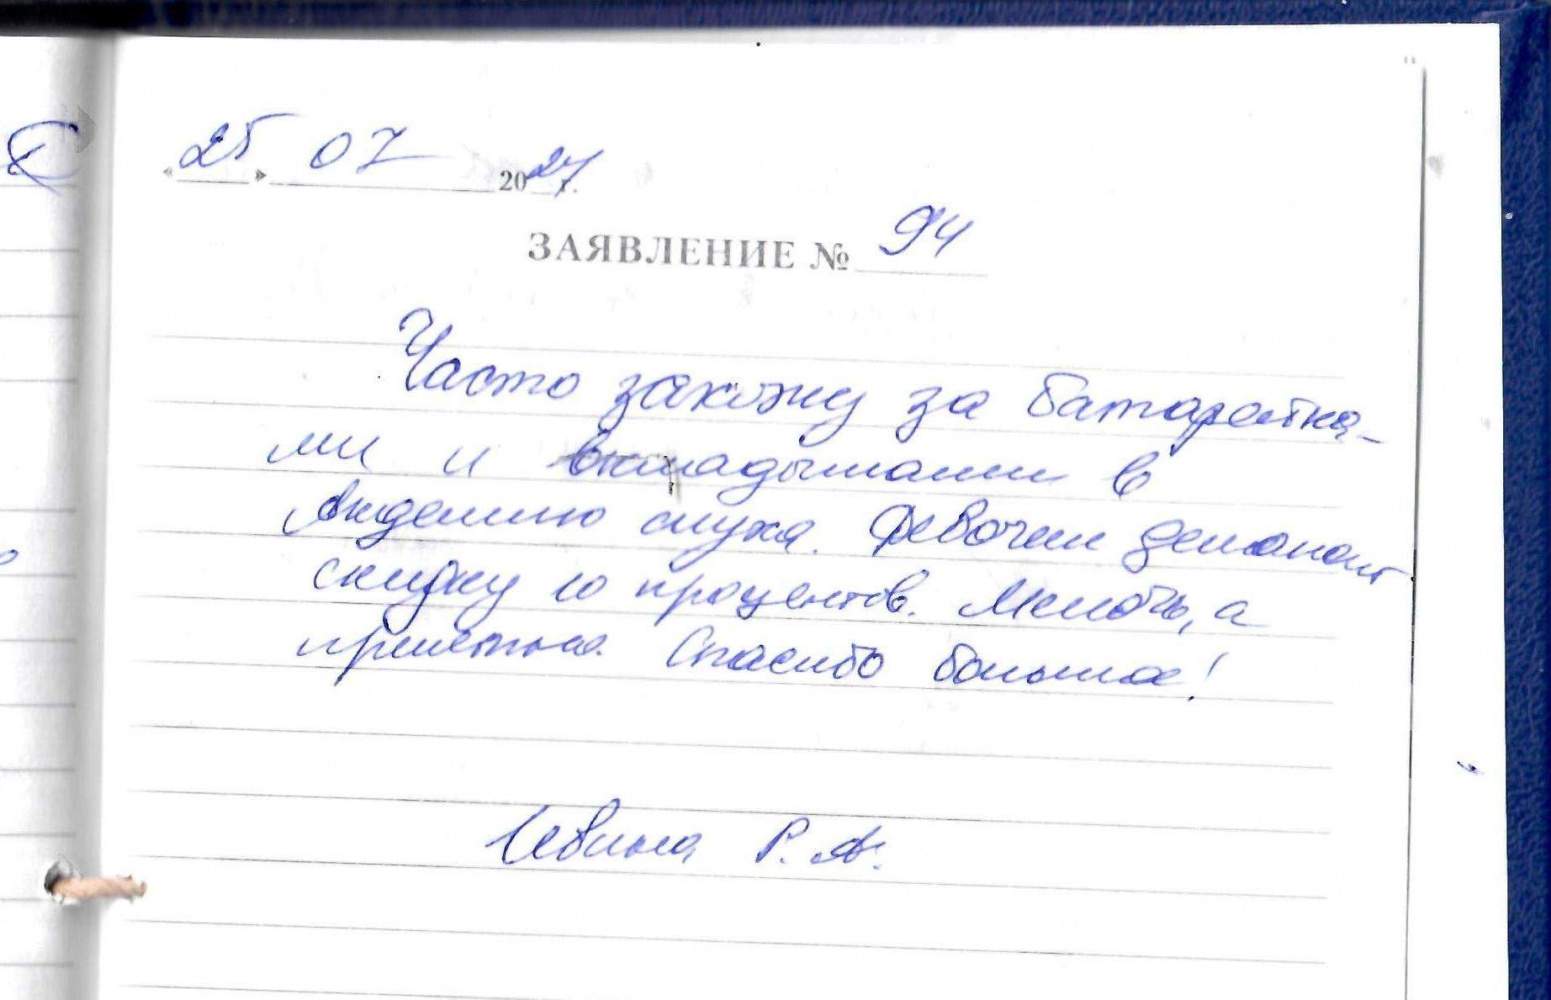 « 25 » 07 2024 г.
ЗАЯВЛЕНИЕ № 94
Часто захожу за батарейка-
ми и вкладышами в
Академию слуха. Девочки делают
скидку 10 процентов. Мелочь, а
приятно. Спасибо большое!
Левина Р. А.